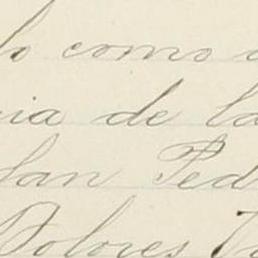 lo como
cia de la
San Pedr
Dolores